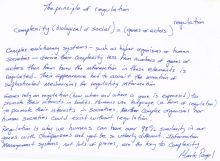 The principle of regulation
Complexity (biological or social) = (genes or actors) regulation
Complex evolutionary systems - such as higher organisms or human
societies - derive their complexity less from numbers of genes or
actors than from how the interaction in these elements is
regulated. Their appearance had to await the invention of
sophisticated mechanisms for regulating information
Genes rely on regulation (how when and where a gene is expressed) to
promote their interests in bodies. Humans use language (a form of regulation)
to promote their interests in societies. Neither complex organisms nor
human societies could exist without regulation.
Regulation is why us humans can have over 98% similarity in our
genes with Chimpanzees and yet be so utterly different. Information
Management systems, not lots of pieces, are the key to Complexity
Mark Pagel